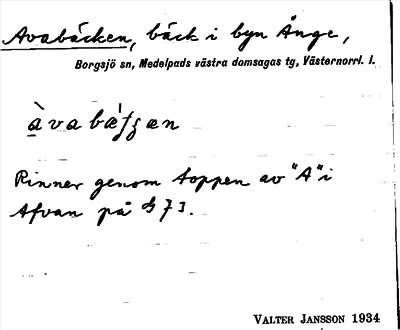 Avabäcken, bäck i byn Ånge,
Borgsjö sn, Medelpads västra domsagas tg, Västernorrl. l.
Rinner genom toppen av "A" i
Afvan på
VALTER JANSSON 1934